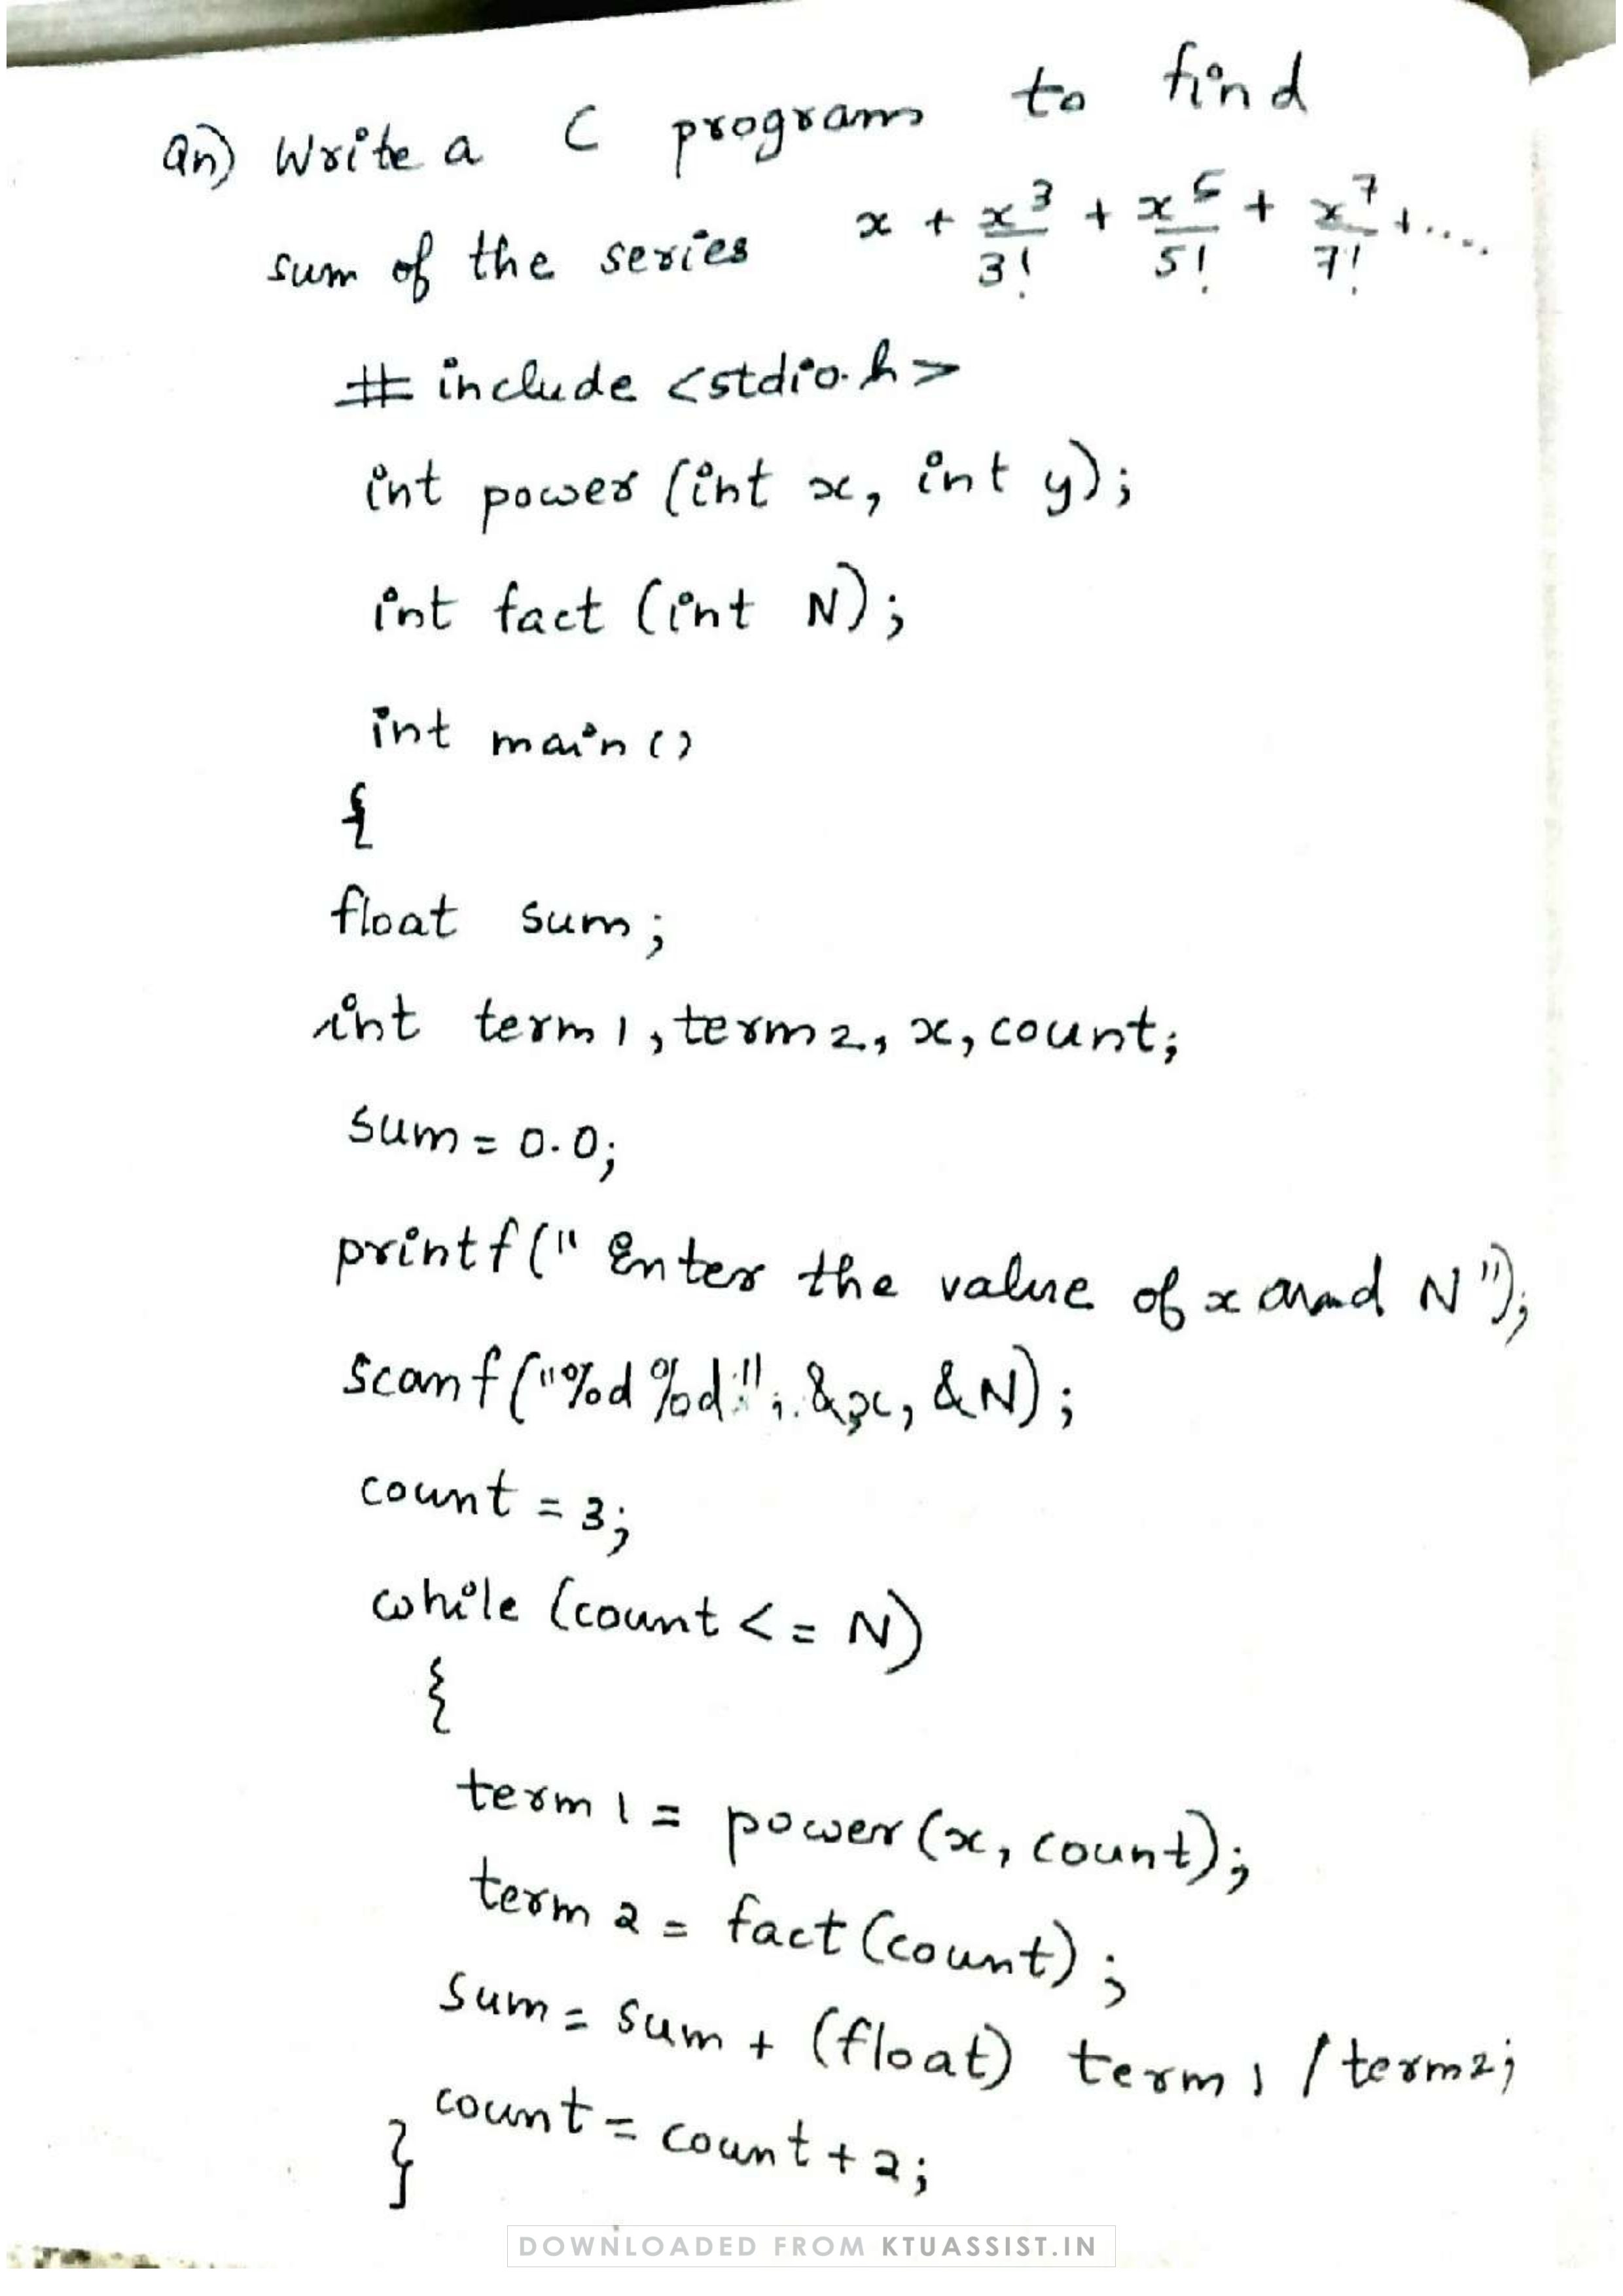 Qn) Write a C program to find
sum of the series x + x³/3! + x⁵/5! + x⁷/7! + ....
# include <stdio.h>
int power (int x, int y);
int fact (int N);
int main ()
{
float sum;
int term1, term2, x, count;
sum = 0.0;
printf(" Enter the value of x and N");
scanf("%d %d", &x, &N);
count = 3;
while (count <= N)
{
term1 = power(x, count);
term2 = fact(count);
sum = sum + (float) term1 / term2;
count = count + 2;
}
DOWNLOADED FROM KTUASSIST.IN